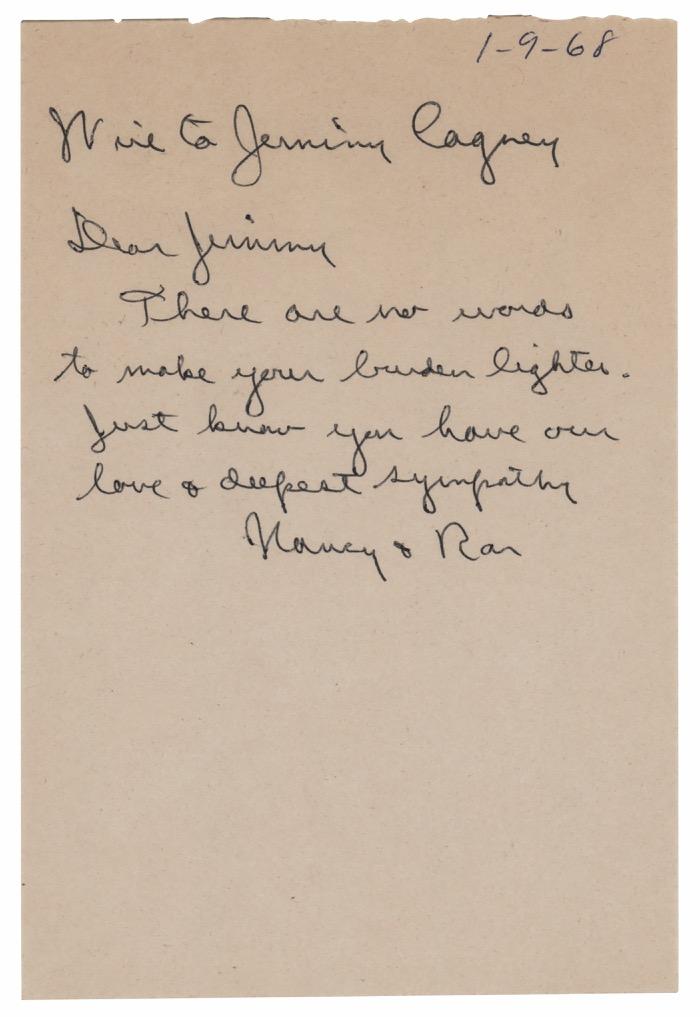 1-9-68
Wire to Jimmy Cagney
Dear Jimmy
There are no words
to make your burden lighter.
Just know you have our
love & deepest sympathy
Nancy & Ron